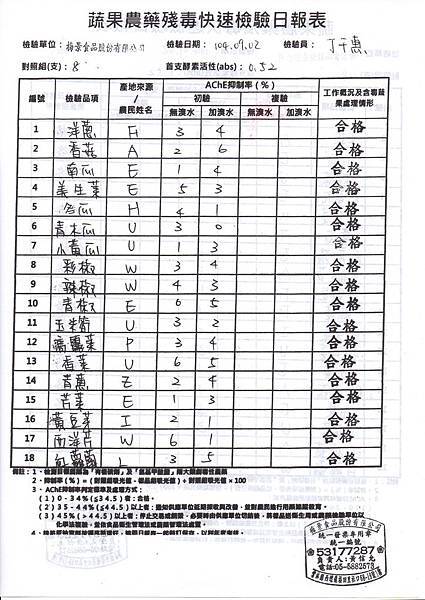 蔬果農藥殘毒快速檢驗日報表
檢驗單位: 梅景食品股份有限公司 檢驗日期: 104.09.02 檢驗員: 丁千惠
對照組(支): 8 首支酵素活性(abs): 0.52
編號 檢驗品項 產地來源/農民姓名 AChE抑制率(%) 工作概況及含毒蔬果處理情形
初驗 複驗
無滴水 加滴水 無滴水 加滴水
1 洋蔥 H 3 4 合格
2 香菇 A 2 6 合格
3 南瓜 E 1 4 合格
4 美生菜 E 5 3 合格
5 冬瓜 H 4 1 合格
6 青木瓜 U 3 0 合格
7 小黃瓜 U 1 3 合格
8 彩椒 W 3 4 合格
9 辣椒 W 4 3 合格
10 青椒 E 0 5 合格
11 玉米筍 U 3 2 合格
12 P 3 4 合格
13 香菜 U 6 5 合格
14 青蔥 Z 2 4 合格
15 芹菜 E 1 3 合格
16 黃豆芽 I 2 1 合格
17 西洋芹 W 6 1 合格
18 紅蘿蔔 L 3 5 合格
2、抑制率(%)=(對照組吸光值-樣品組吸光值)÷對照組吸光值×100
3、AChE抑制率判定標準及處理方式:
(1)0-34%(≦34.5)者:合格。
(2)35-44%(≦44.5)以上者:
(3)45%(>44.5)以上者:
梅景食品股份有限公司
統一發票專用章
統一編號
53177287
負責人:黃信允
電話:05-5882573